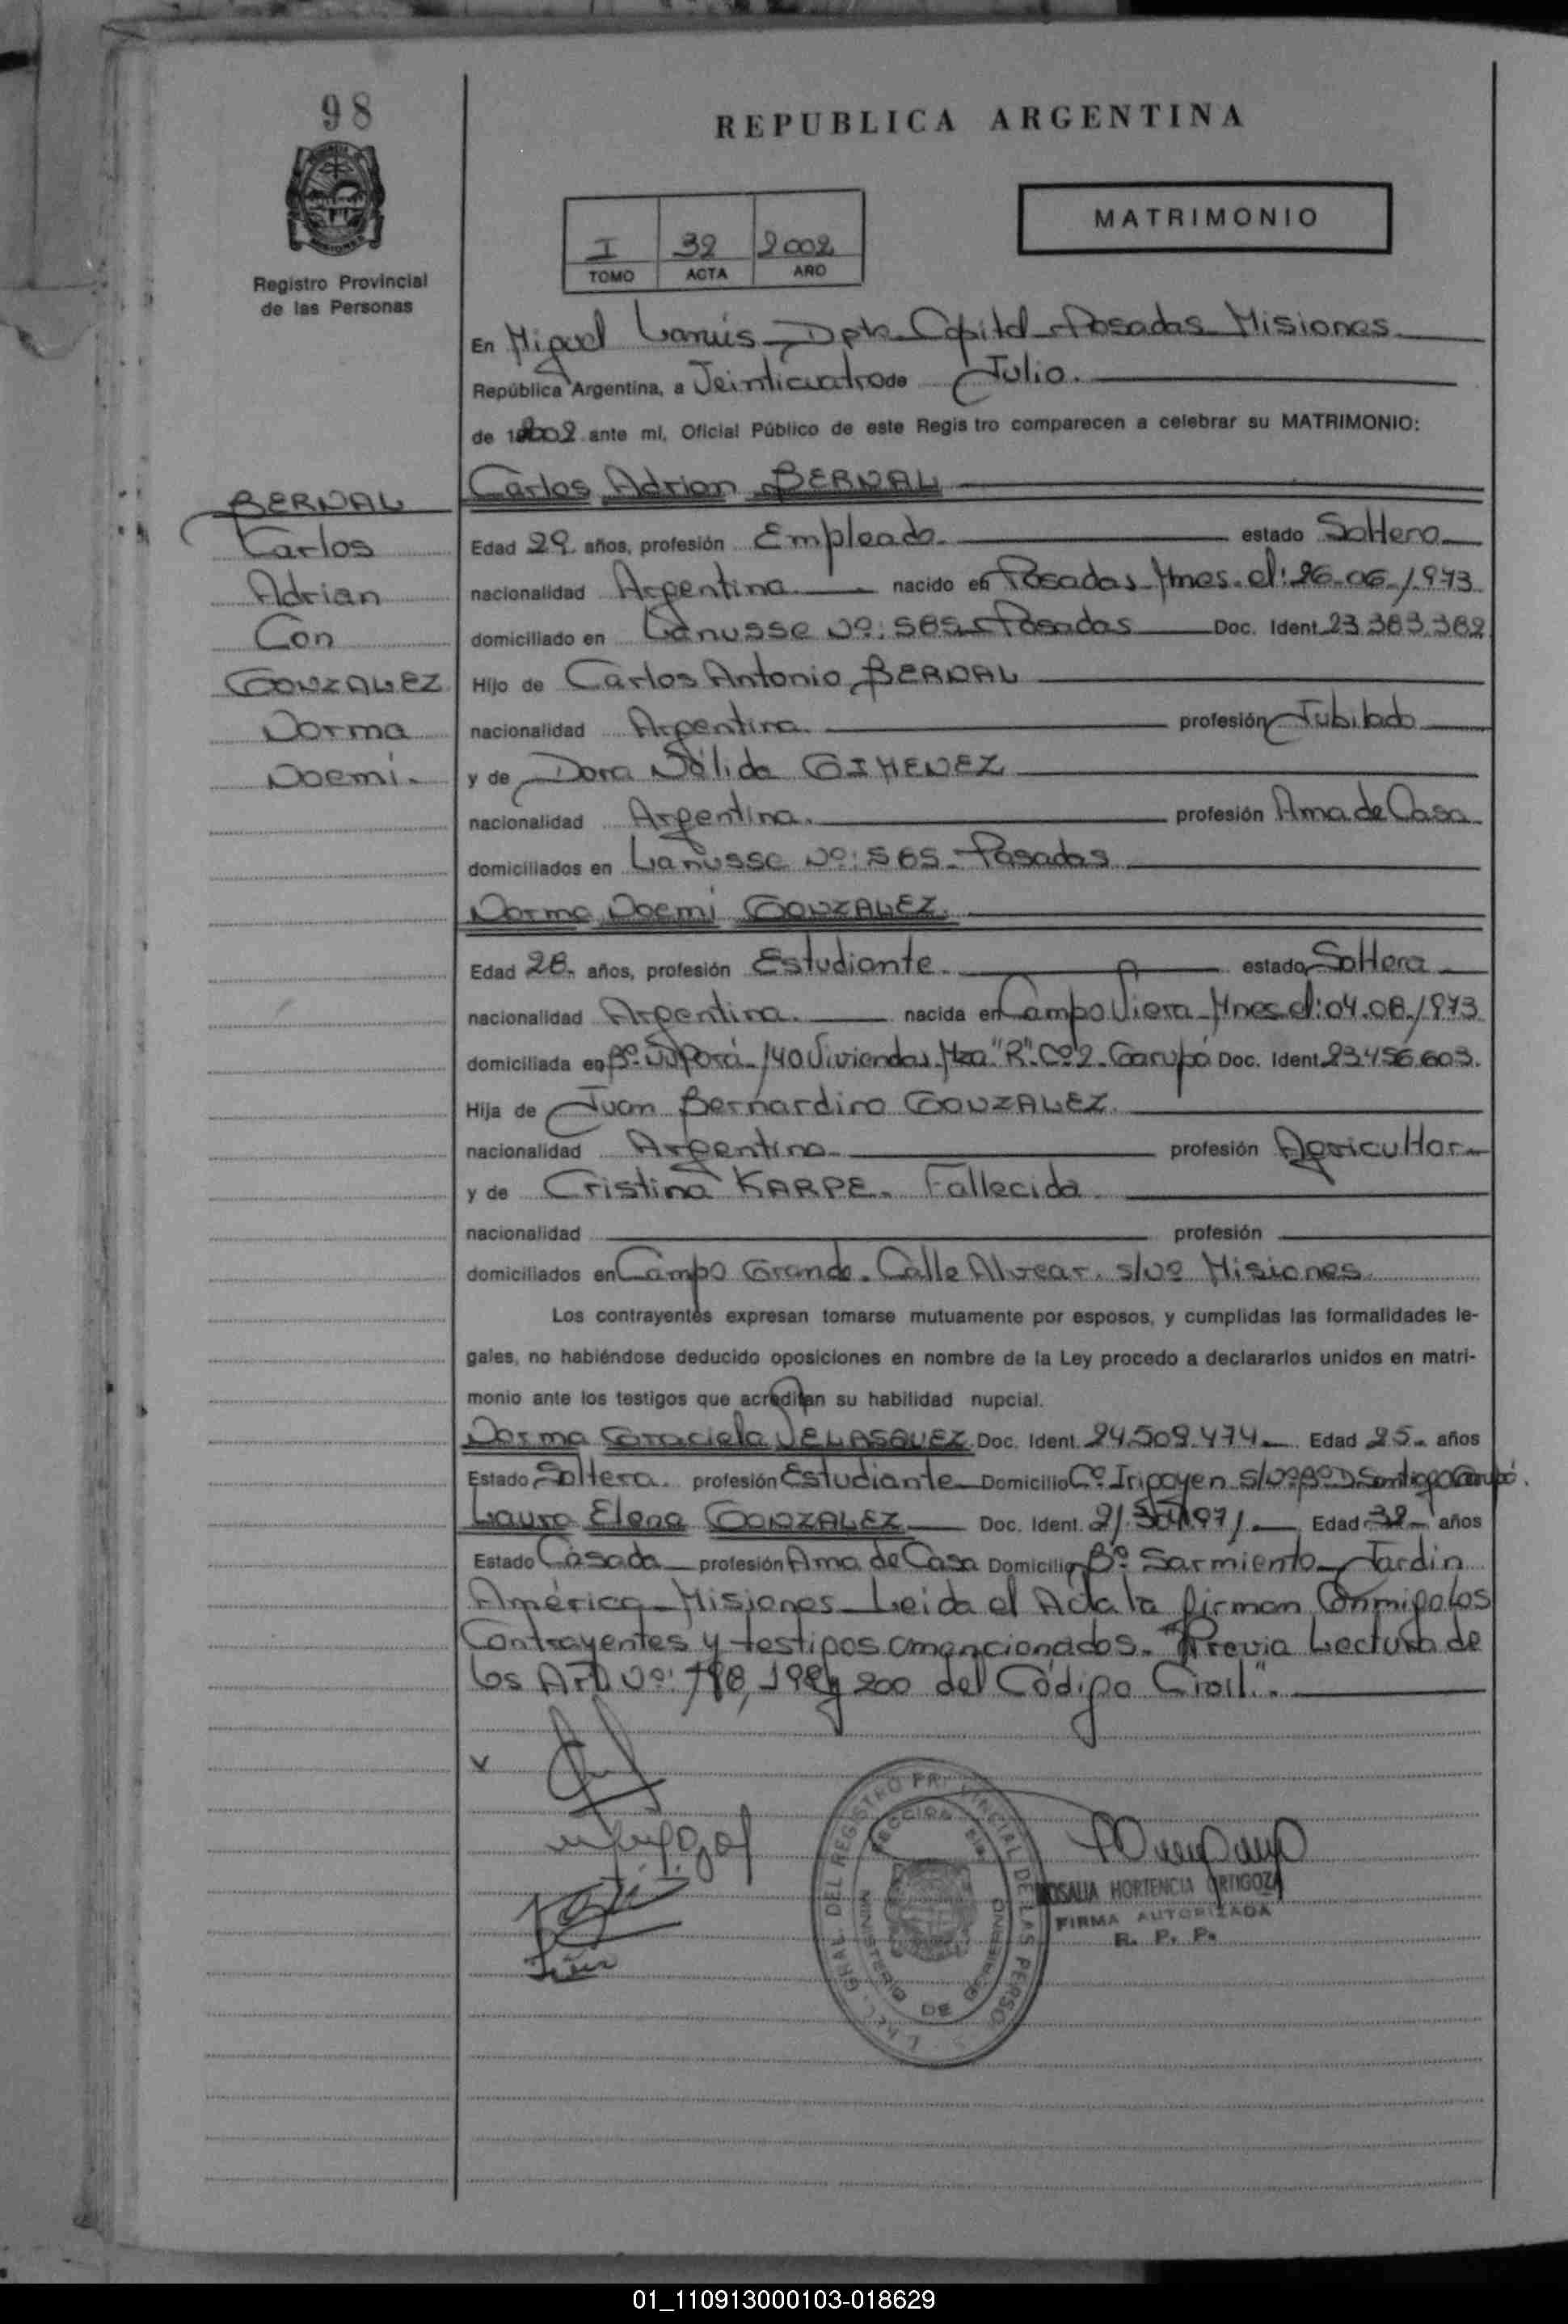 98
REPUBLICA ARGENTINA
MATRIMONIO
I 32 2002
TOMO ACTA AÑO
Registro Provincial
de las Personas
En Miguel Lanús - Dpto Capital - Posadas Misiones
República Argentina, a Veinticuatro de Julio.
de 2002 ante mí, Oficial Público de este Registro comparecen a celebrar su MATRIMONIO:
Carlos Adrian BERNAL
BERNAL
Carlos
Adrian
Con
GONZALEZ
Norma
Noemi.
Edad 29 años, profesión Empleado estado Soltero
nacionalidad Argentina nacido en Posadas Mnes. el: 26-06-1973
domiciliado en Lanusse Nº: 565 - Posadas Doc. Ident 23.383.382
Hijo de Carlos Antonio BERNAL
nacionalidad Argentina profesión Jubilado
y de Dora Nélida GIMENEZ
nacionalidad Argentina. profesión Ama de Casa
domiciliados en Lanusse Nº: 565 - Posadas
Norma Noemi GONZALEZ
Edad 28. años, profesión Estudiante. estado Soltera
nacionalidad Argentina. nacida en Campo Viera - Mnes el: 04.08.1973
domiciliada en Bº. Ñu Porá - 140 Viviendas Mza "R" Cº 2 - Garupá Doc. Ident 23.456.603.
Hija de Juan Bernardino GONZALEZ.
nacionalidad Argentina profesión Agricultor
y de Cristina KARPE. Fallecida
nacionalidad profesión
domiciliados en Campo Grande. Calle Alvear. s/Nº Misiones
Los contrayentes expresan tomarse mutuamente por esposos, y cumplidas las formalidades le-
gales, no habiéndose deducido oposiciones en nombre de la Ley procedo a declararlos unidos en matri-
monio ante los testigos que acreditan su habilidad nupcial.
Norma Graciela VELASQUEZ. Doc. Ident. 24.509.474 Edad 25 años
Estado Soltera. profesión Estudiante Domicilio Cº Iripoyen s/Nº Bº D. Santiago Garupá.
Laura Elena GONZALEZ Doc. Ident. Edad 32 años
Estado Casada profesión Ama de Casa Domicilio Bº Sarmiento - Jardin
América - Misiones - Leida el Acta la firman Conmigo Los
Contrayentes y testigos amencionados. "Previa Lectura de
los Art. Nº: 198, 199 y 200 del Código Civil".
ROSALIA HORTENCIA ORTIGOZA
FIRMA AUTORIZADA
R. P. P.
GRAL. DEL REGISTRO PROVINCIAL DE LAS PERSO
MINISTERIO DE GOBIERNO
01_110913000103-018629